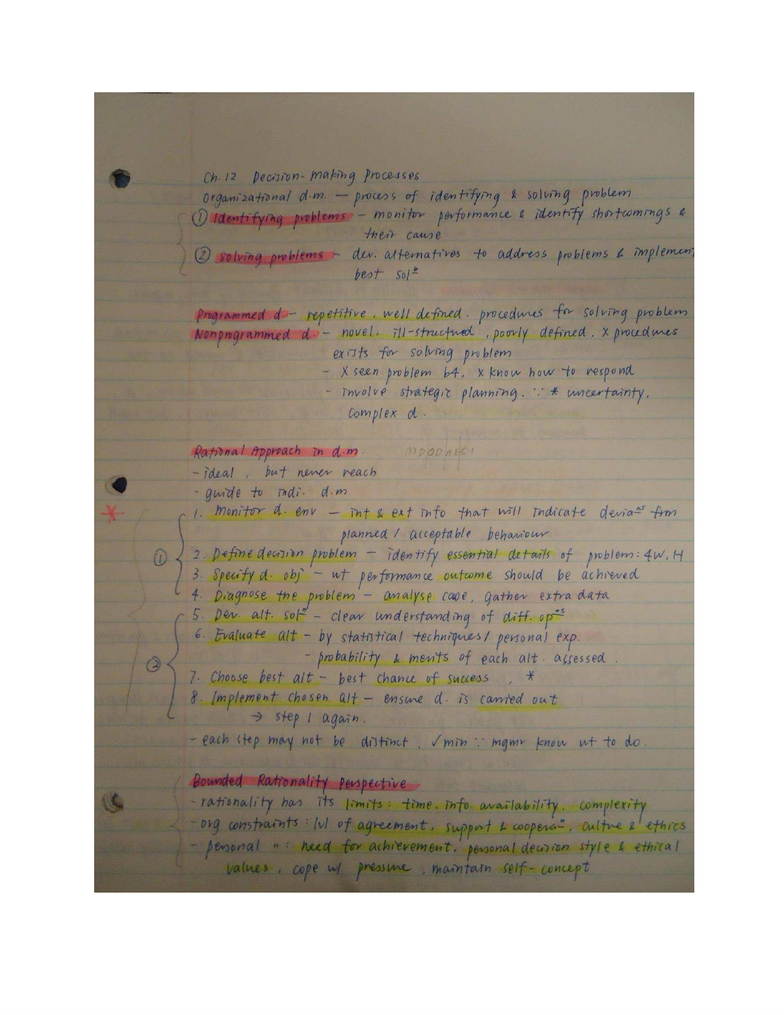 Ch.12 Decision-making Processes
Organizational d.m. — process of identifying & solving problem
① Identifying problems - monitor performance & identify shortcomings &
their cause
② solving problems - dev. alternatives to address problems & implement
best solⁿ
Programmed d - repetitive, well defined, procedures for solving problem
Nonprogrammed d. - novel, ill-structured, poorly defined, X procedures
exists for solving problem
- X seen problem b4, X know how to respond
- involve strategic planning, ∵ * uncertainty,
complex d.
Rational Approach in d.m
- ideal, but never reach
- guide to indi. d.m
* 1. Monitor d. env - int & ext info that will indicate deviaⁿˢ frm
planned / acceptable behaviour
① 2. Define decision problem - identify essential details of problem: 4W, H
3. Specify d. obj - wt performance outcome should be achieved
4. Diagnose the problem - analyse case, gather extra data
5. Dev. alt. solⁿ - clear understanding of diff. opⁿˢ
6. Evaluate alt - by statistical techniques / personal exp.
② - probability & merits of each alt. assessed.
7. Choose best alt - best chance of success, *
8. Implement chosen alt - ensure d. is carried out
→ step 1 again.
- each step may not be distinct, √min ∵ mgmr know wt to do.
Bounded Rationality Perspective
- rationality has its limits: time, info availability, complexity
- org constraints: lvl of agreement, support & cooperaⁿ, cultre & ethics
- personal " : need for achievement, personal decision style & ethical
values, cope w/ pressure, maintain self-concept